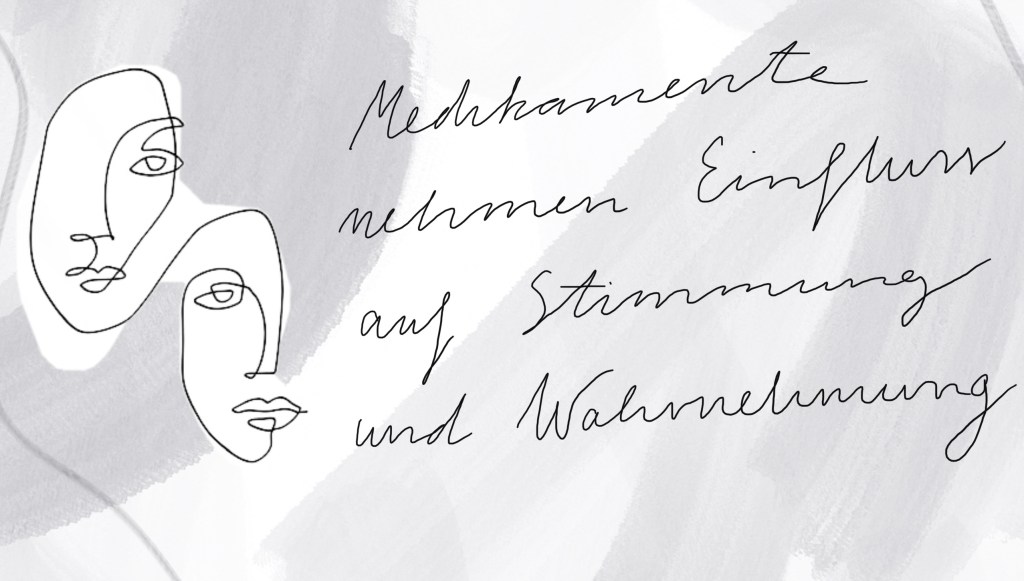 Medikamente
nehmen Einfluss
auf Stimmung
und Wahrnehmung